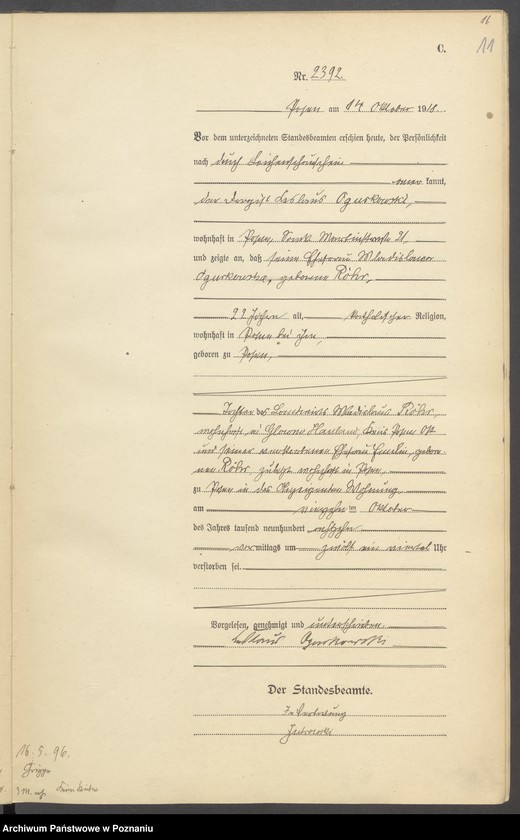 16
11
C.
Nr. 2392
Posen am 14 Oktober 1918.
Vor dem unterzeichneten Standesbeamten erschien heute, der Persönlichkeit
nach durch Leichenschauschein
aner kannt,
der Drogist Leslaus Ogurkowski,
wohnhaft in Posen, Sankt Martinstraße 21,
und zeigte an, daß seine Ehefrau Wladislawa
Ogurkowska, geborene Röhr,
22 Jahre alt, katholischer Religion,
wohnhaft in Posen bei ihm,
geboren zu Posen,
Tochter des Landwirts Wladislaus Röhr,
wohnhaft in Glowno Hauland, Kreis Posen Ost
und seiner verstorbenen Ehefrau Emilie, gebore
nen Röhr, zuletzt wohnhaft in Posen,
zu Posen in der Wohnung
am vierzehn ten Oktober
des Jahres tausend neunhundert achtzehn
vor mittags um zwölf ein viertel Uhr
verstorben sei.
Vorgelesen, genehmigt und unterschrieben.
Leslaus Ogurkowski
Der Standesbeamte.
In Vertretung
16.5.96.
Grippe
3 M.
Archiwum Państwowe w Poznaniu